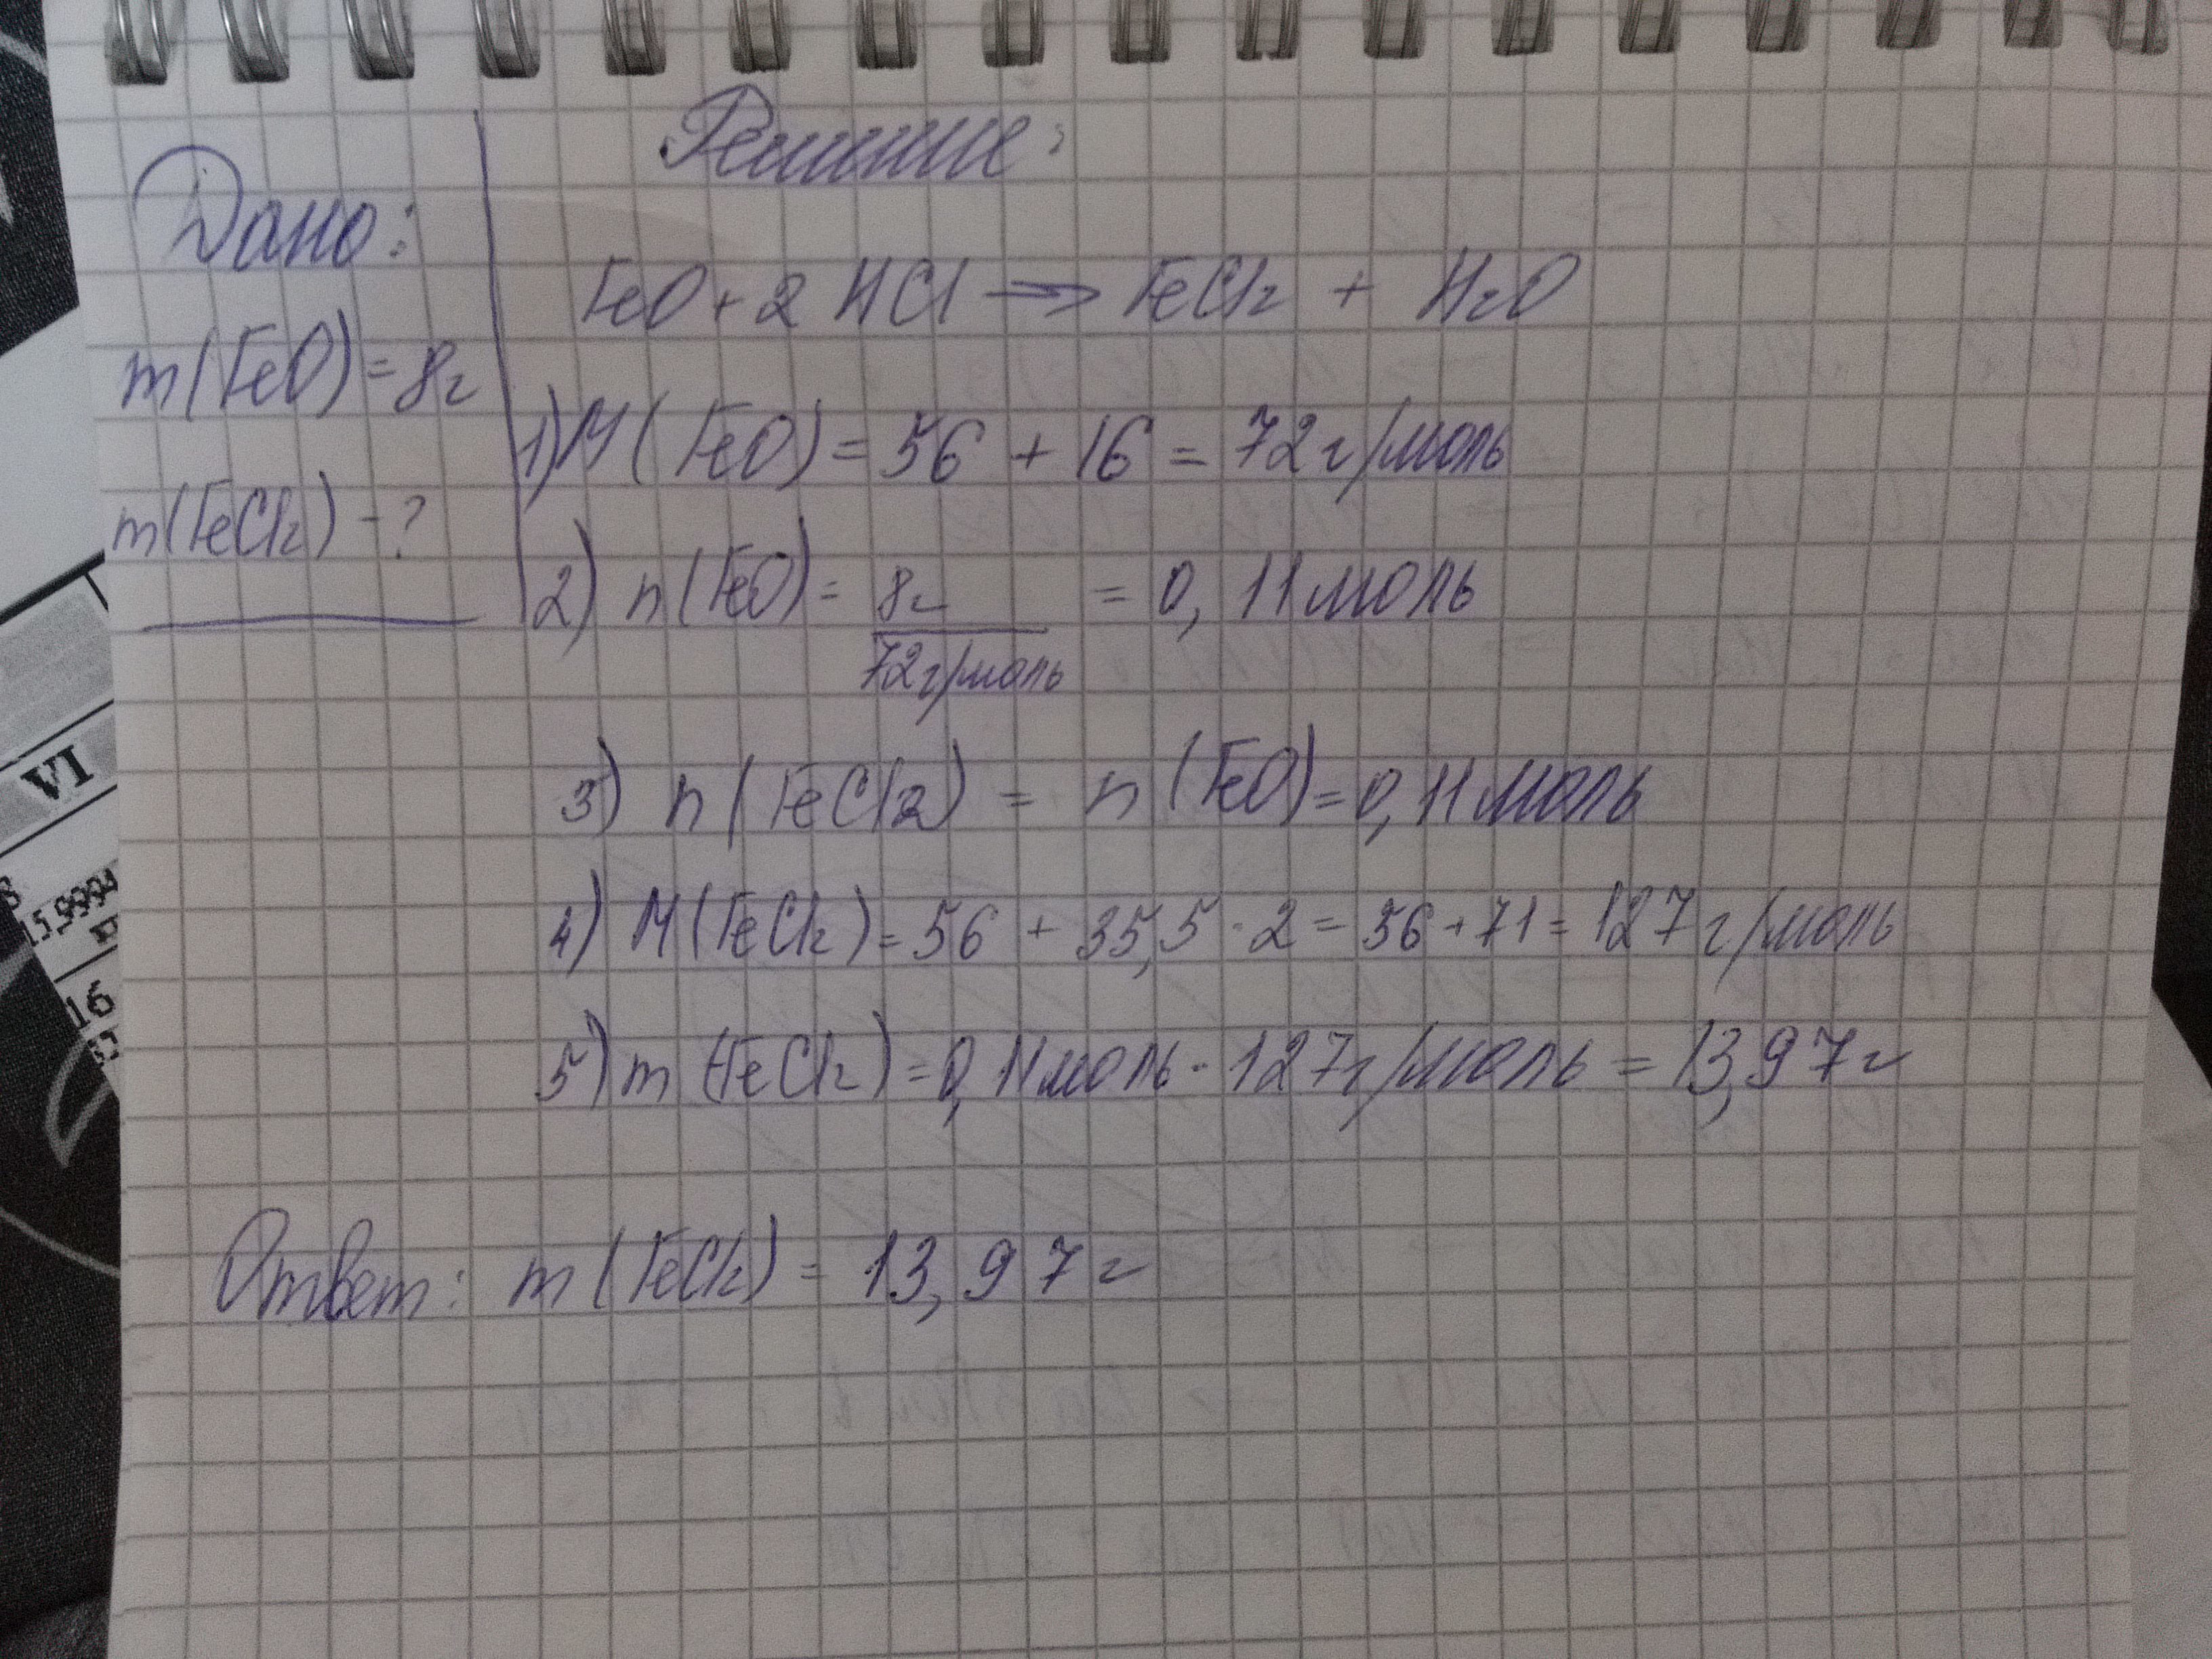 Решение:
Дано:
FeO + 2 HCl → FeCl₂ + H₂O
m(FeO) = 8г
m(FeCl₂) - ?
1) M(FeO) = 56 + 16 = 72 г/моль
2) n(FeO) = 8г / 72 г/моль = 0,11 моль
3) n(FeCl2) = n(FeO) = 0,11 моль
4) M(FeCl₂) = 56 + 35,5 · 2 = 56 + 71 = 127 г/моль
5) m(FeCl₂) = 0,11 моль · 127 г/моль = 13,97 г
Ответ: m(FeCl₂) = 13,97 г
VI
8
15,9994
16